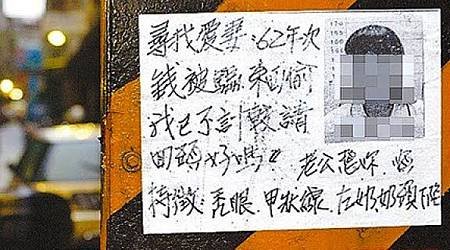 尋找愛妻:62年次
錢被騙.東西偷
我已不計較請
回頭好嗎 老公
特徵:禿眼.甲狀線.左奶奶頭下陷